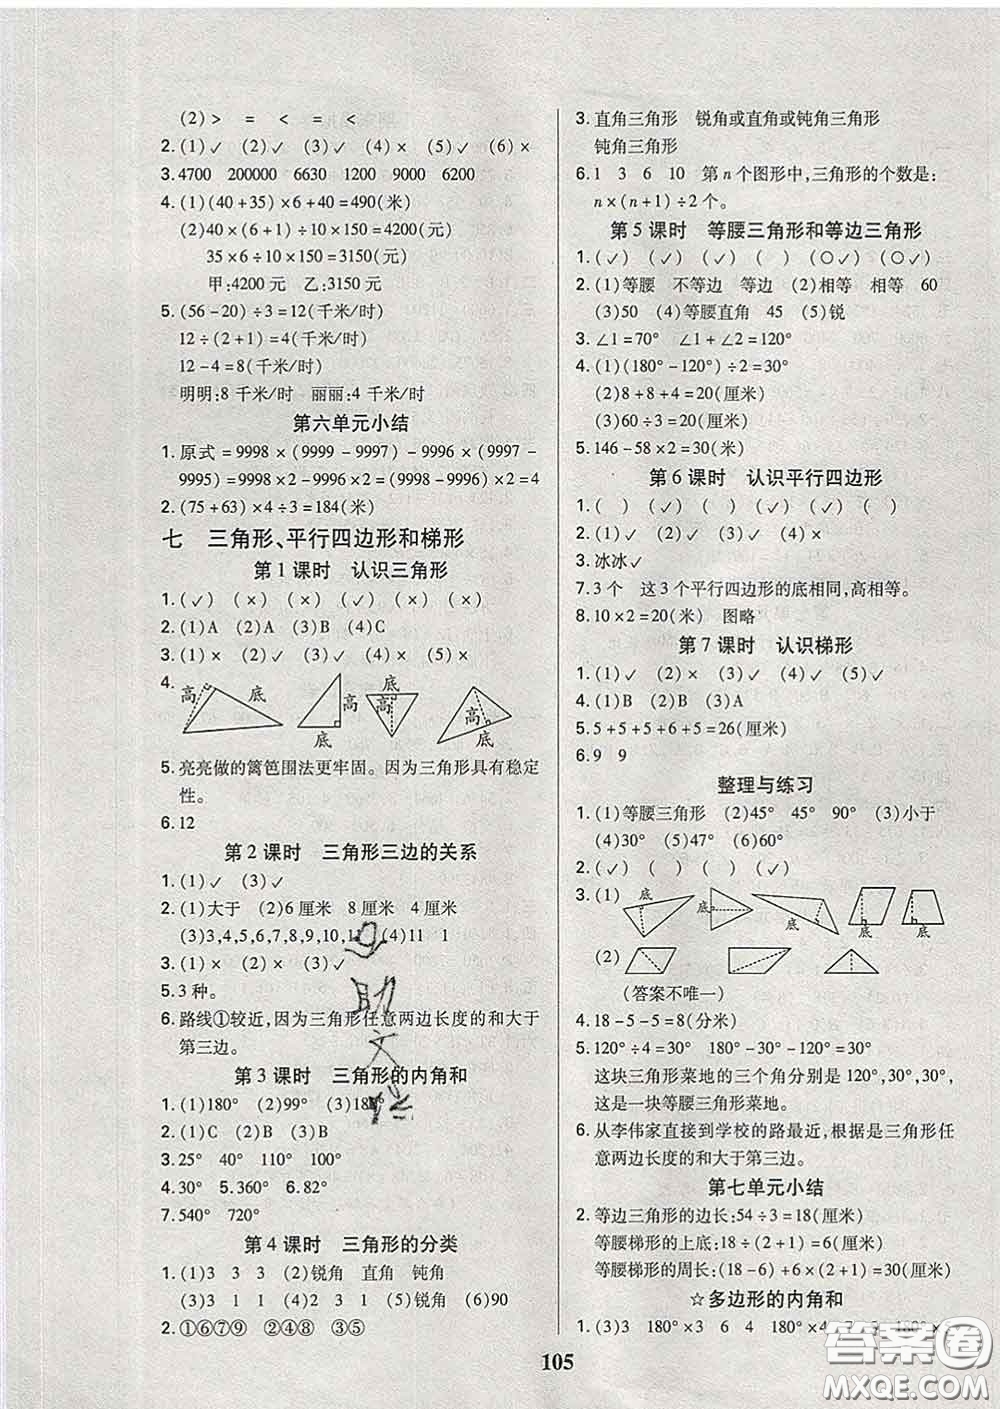 (2)> = < = <
2.(1)✓ (2)✓ (3)✓ (4)× (5)✓ (6)×
3.4700 200000 6630 1200 9000 6200
4.(1)(40+35)×6+40=490(米)
(2)40×(6+1)÷10×150=4200(元)
35×6÷10×150=3150(元)
甲:4200元 乙:3150元
5.(56-20)÷3=12(千米/时)
12÷(2+1)=4(千米/时)
12-4=8(千米/时)
明明:8千米/时 丽丽:4千米/时
第六单元小结
1.原式=9998×(9999-9997)-9996×(9997-
9995)=9998×2-9996×2=(9998-9996)×2=4
2.(75+63)×4÷3=184(米)
七 三角形、平行四边形和梯形
第1课时 认识三角形
1.(✓) (×) (×) (✓) (×)
2.(1)A (2)A (3)B (4)C
3.(1)× (2)✓ (3)✓ (4)× (5)×
4. 高 底 高 底 底 高 高 底
5.亮亮做的篱笆围法更牢固。因为三角形具有稳定
性。
6.12
第2课时 三角形三边的关系
1.(1)✓ (3)✓
2.(1)大于 (2)6厘米 8厘米 4厘米
(3)3,4,5,6,7,8,9,10,11 (4)11 1
3.(1)× (2)× (3)✓
5.3种。
6.路线①较近,因为三角形任意两边长度的和大于
第三边。
第3课时 三角形的内角和
1.(1)180° (2)99° (3)180°
2.(1)C (2)B (3)B
3.25° 40° 110° 100° 45°
4.30° 5.360° 6.82°
7.540° 720°
第4课时 三角形的分类
1.(1)3 3 3 (2)锐角 直角 钝角
(3)3 1 1 (4)2 3 1 (5)锐角 (6)90
2.①⑥⑦⑨ ②④⑧ ③⑤
3.直角三角形 锐角或直角或钝角三角形
钝角三角形
6.1 3 6 10 第n个图形中,三角形的个数是:
n×(n+1)÷2个。
第5课时 等腰三角形和等边三角形
1.(✓) (✓) (✓) ( ) (○✓) (○✓)
2.(1)等腰 不等边 等边 (2)相等 相等 60
(3)50 (4)等腰直角 45 (5)锐
3.∠1=70° ∠1+∠2=120°
4.(1)(180°-120°)÷2=30°
(2)8+8+4=20(厘米)
(3)60÷3=20(厘米)
5.146-58×2=30(米)
第6课时 认识平行四边形
1.( ) (✓) (✓) (✓) (✓) ( )
2.(1)✓ (2)✓ (3)✓ (4)×
3.冰冰✓
7.3个 这3个平行四边形的底相同,高相等。
8.10×2=20(米) 图略
第7课时 认识梯形
1.(1)✓ (2)× (3)✓ (4)✓ (5)✓
4.(1)B (2)B (3)A
5.5+5+5+6+5=26(厘米)
6.9 9
整理与练习
1.(1)等腰三角形 (2)45° 45° 90° (3)小于
(4)30° (5)47° (6)60°
2.(✓) ( ) ( ) (✓)
3.(1) 底 底 底 底 底
(2)
(答案不唯一)
4.18-5-5=8(分米)
5.120°÷4=30° 180°-120°-30°=30°
这块三角形菜地的三个角分别是120°,30°,30°,
这是一块等腰三角形菜地。
6.从李伟家直接到学校的路最近,根据是三角形任
意两边长度的和大于第三边。
第七单元小结
2.等边三角形的边长:54÷3=18(厘米)
等腰梯形的上底:18÷(2+1)=6(厘米)
等腰梯形的周长:(18-6)+6×(2+1)=30(厘米)
☆多边形的内角和
1.(3)3 180°×3 6 4 180°×4 7 5 180°×5
105
答案圈
MXQE.COM